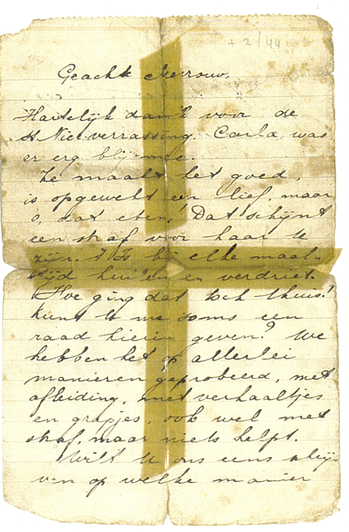 ± 2/44
Geachte Mevrouw.
Hartelijk dank voor de
St Nic. verrassing. Carla was
er erg blij mee.
Ze maakt het goed,
is opgewekt en lief, maar
o, dat eten! Dat schijnt
een straf voor haar te
zijn. 't Is bij elke maal-
tijd huilen en verdriet.
Hoe ging dat toch thuis?
Kunt u me soms een
raad hierin geven? We
hebben het op allerlei
manieren geprobeerd, met
afleiding, met verhaaltjes
en grapjes, ook wel met
straf, maar niets helpt.
Wilt U ons eens
van op welke manier